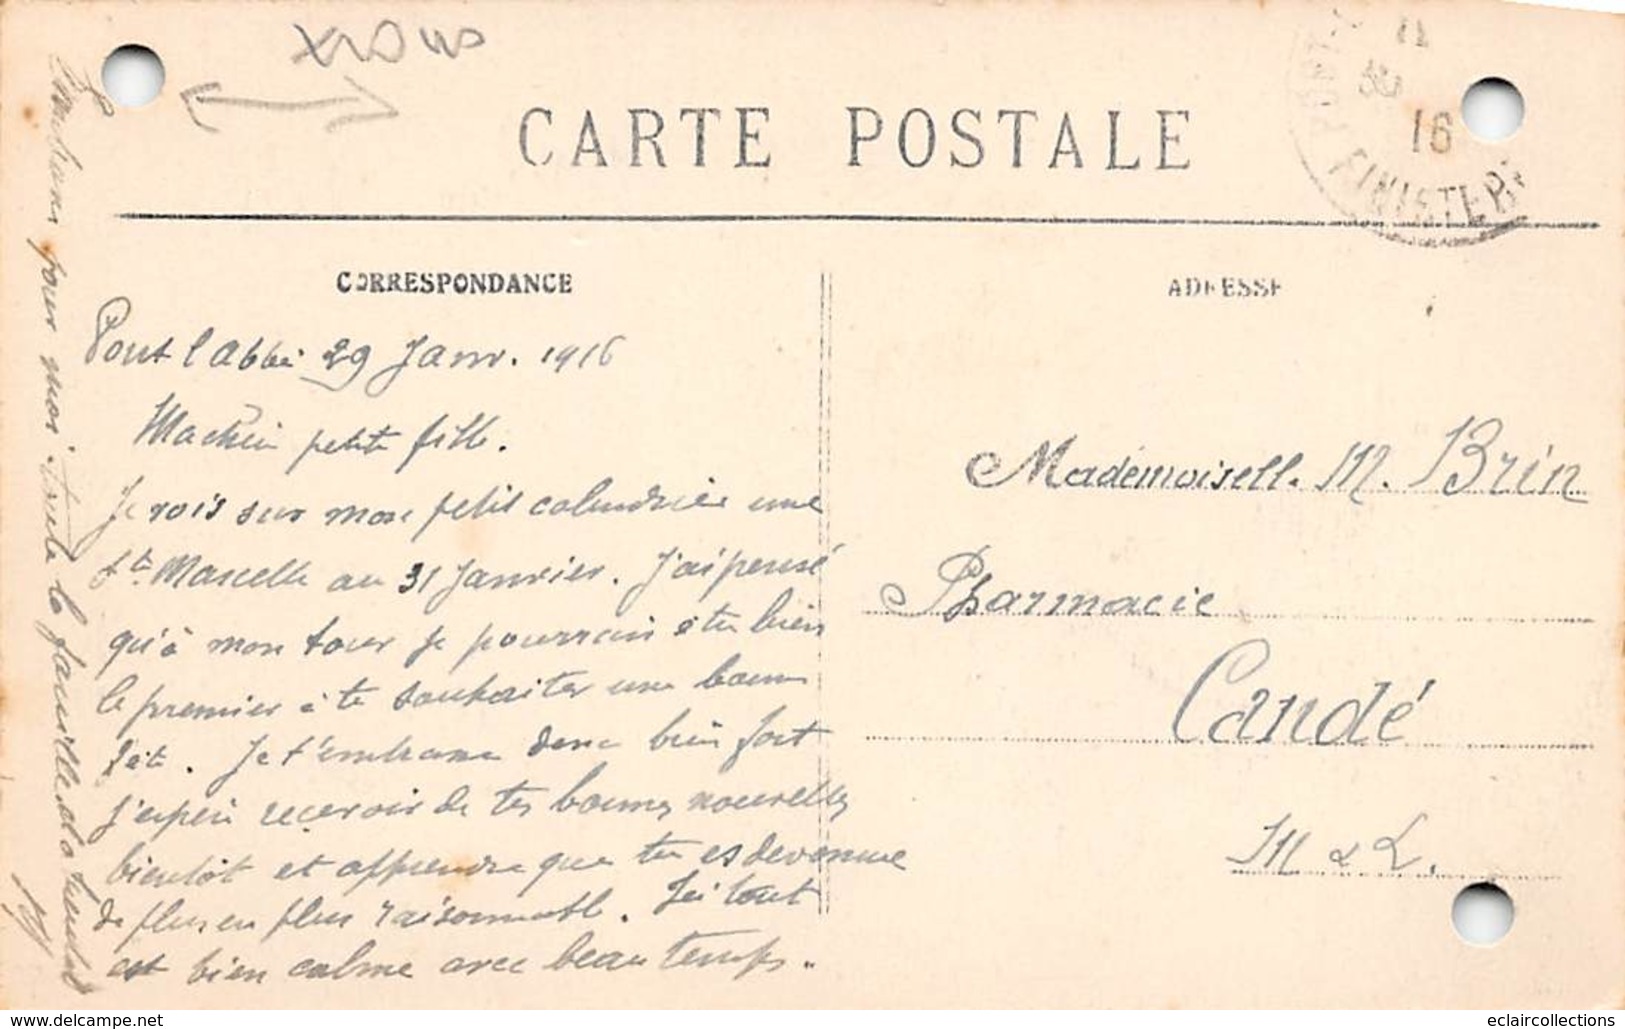 CARTE POSTALE
16
FINISTERE
CORRESPONDANCE
ADRESSE
Pont l'abbé 29 Janv. 1916
Ma chère petite fille.
Je vois sur mon petit calendrier une
Ste Marcelle au 31 Janvier. J'ai pensé
qu'à mon tour je pourrais être bien
le premier à te souhaiter une bonne
fête. Je t'embrasse donc bien fort
J'espère recevoir de tes bonnes nouvelles
bientôt et apprendre que tu es devenue
de plus en plus raisonnable. Ici tout
est bien calme avec beau temps.
Embrasse pour moi toute la famille
Mademoiselle M. Brin
Pharmacie
Candé
M & L.
eclaircollections
© delcampe.net